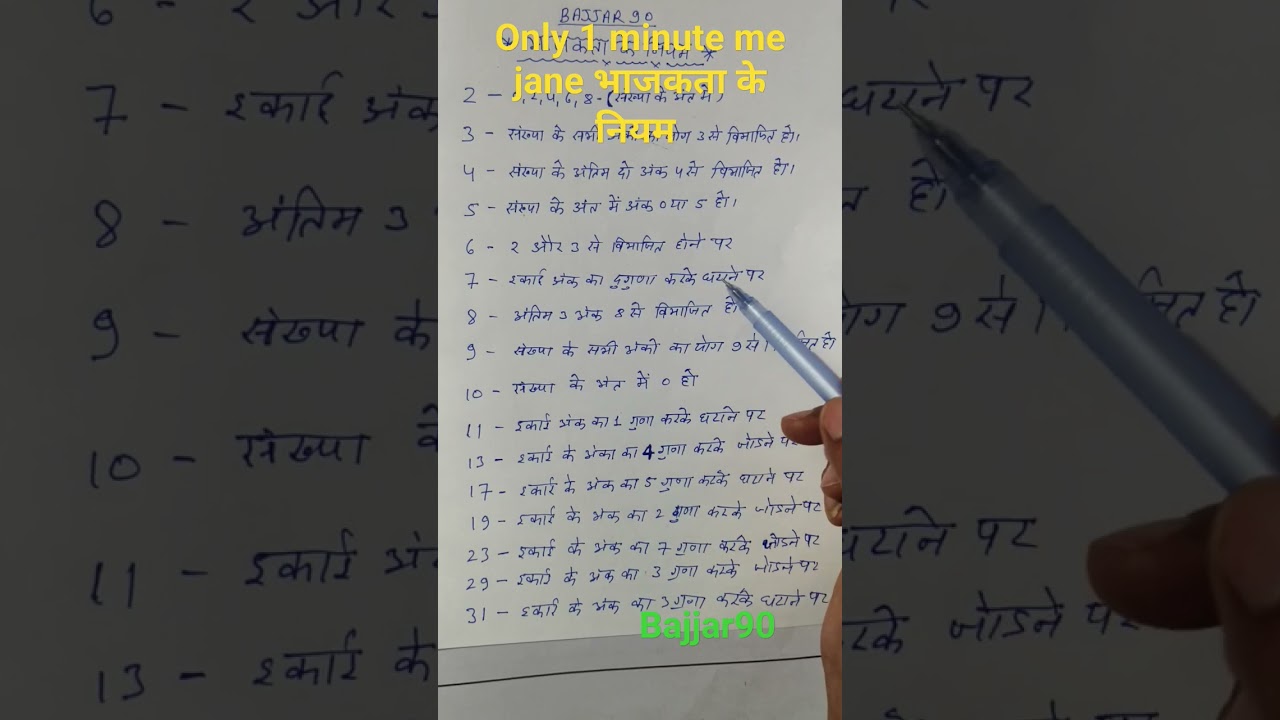 BAJJAR 90
Only 1 minute me
jane भाजकता के
नियम
के नियम *
2 - 2, 4, 6, 8 - (संख्या के अंत में)
3 - संख्या के सभी योग 3 से विभाजित हो।
4 - संख्या के अंतिम दो अंक 4 से विभाजित हो।
5 - संख्या के अंत में अंक 0 या 5 हो।
6 - 2 और 3 से विभाजित होने पर
7 - इकाई अंक का दुगुणा करके घटाने पर
8 - अंतिम 3 अंक 8 से विभाजित हो
9 - संख्या के सभी अंको का योग 9 से हो
10 - संख्या के अंत में 0 हो
11 - इकाई अंक का 1 गुणा करके घटाने पर
13 - इकाई के अंका का 4 गुणा करके जोडने पर
17 - इकाई के अंक का 5 गुणा करके घटाने पर
19 - इकाई के अंक का 2 गुणा करके जोडने पर
23 - इकाई के अंक का 7 गुणा करके जोडने पर
29 - इकाई के अंक का 3 गुणा करके जोडने पर
31 - इकाई के अंक का 3 गुणा करके घटाने पर
Bajjar90